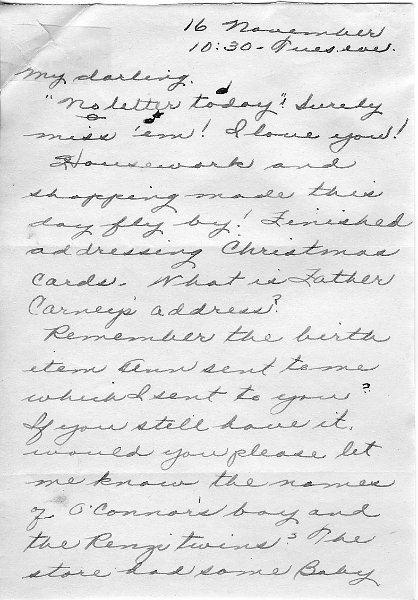 16 November
10:30 - Tues. eve.
My darling.
"No letter today"! Surely
miss 'em! I love you!
Housework and
shopping made this
day fly by! Finished
addressing Christmas
cards. What is Father
Carney's address?
Remember the birth
item Ann sent to me
which I sent to you?
If you still have it,
would you please let
me know the names
of O'Connor's boy and
the Renzi twins? The
store had some Baby